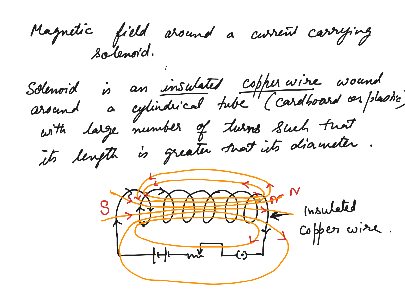 Magnetic field around a current carrying
solenoid.
Solenoid is an insulated copper wire wound
around a cylindrical tube (cardboard or plastic)
with large number of turns such that
its length is greater that its diameter.
S
N
Insulated
copper wire.